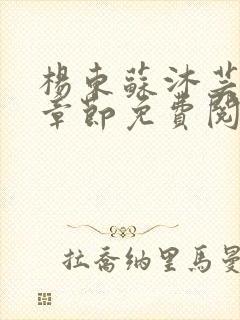 楊東蘇沐芸
章節免費閱
拉喬納里馬曼